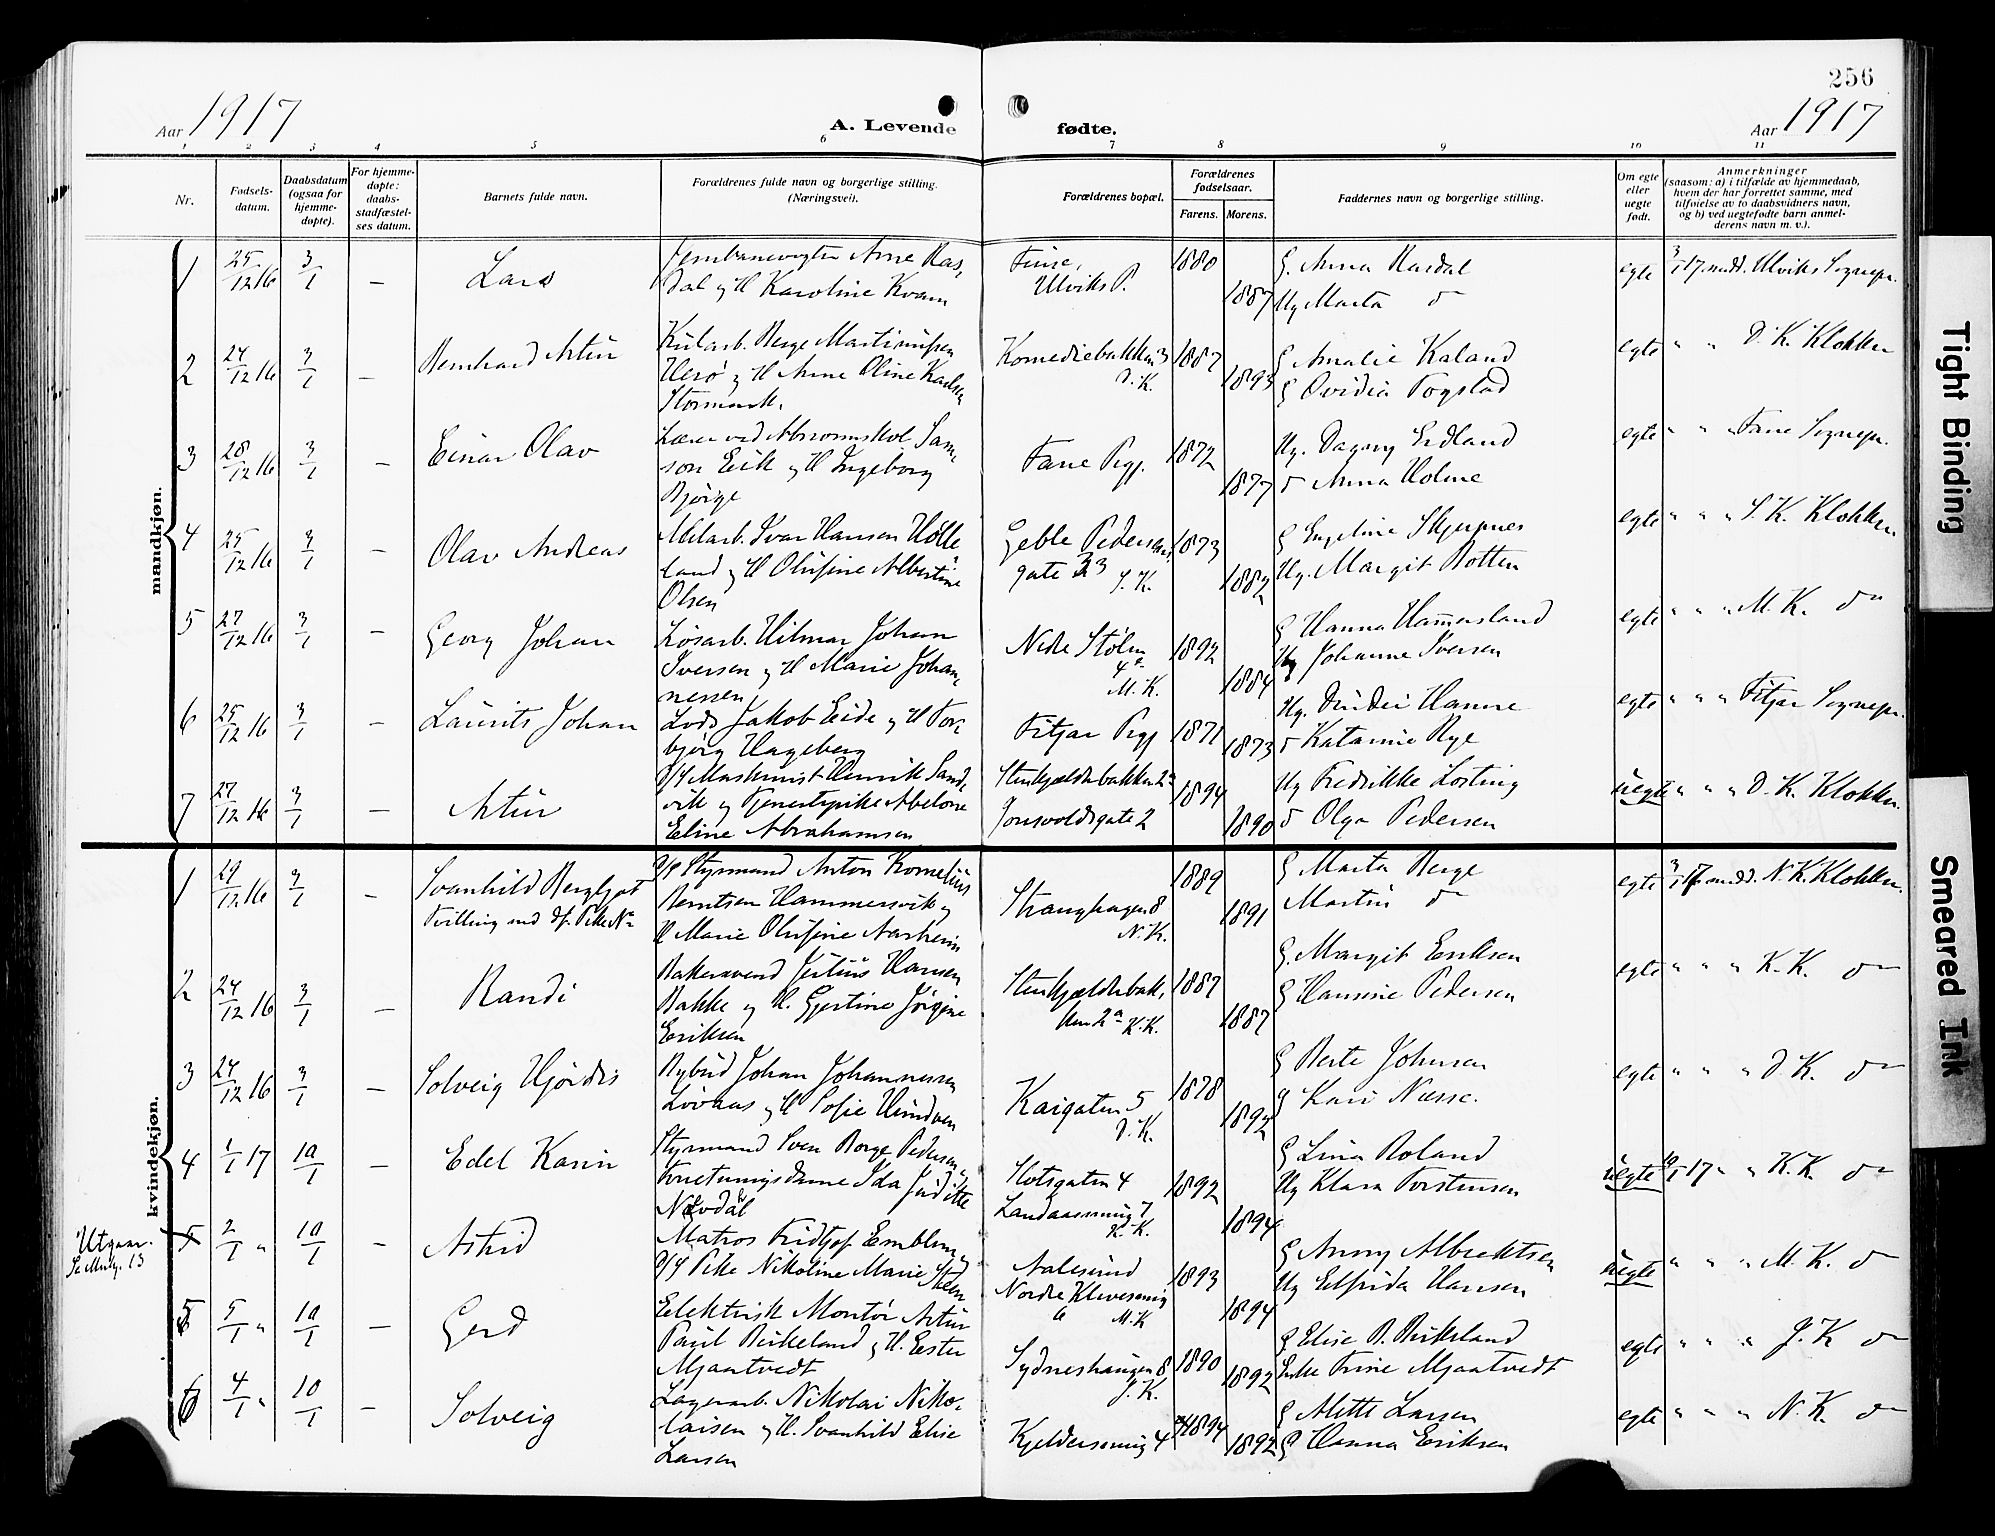 256
Aar 1917
A. Levende fødte.
Aar 1917
1 2 3 4 5 6 7 8 9 10 11
Nr.
Fødsels-
datum.
Daabsdatum
(ogsaa for
hjemme-
døpte).
For hjemme-
døpte:
daabs-
stadfæstel-
ses datum.
Barnets fulde navn.
Forældrenes fulde navn og borgerlige stilling.
(Næringsvei).
Forældrenes bopæl.
Forældrenes
fødselsaar.
Farens. Morens.
Faddernes navn og borgerlige stilling.
Om egte
eller
uegte
født.
Anmerkninger
(saasom: a) i tilfælde av hjemmedaab,
hvem der har forrettet samme, med
tilføielse av to daabsvidners navn,
og b) ved uegtefødte barn anmel-
derens navn m. v.).
mandkjøn.
1 25/12 16 3/1 – Lars
Jernbanevogter Arne
dal og H Karoline Kvam
Finse,
Ulviks P.
1880 1887
G. Anna
Ug Marta do
egte 3/1 17 medd. Ulviks Sognepr.
2 24/12 16 3/1 – Bernhard Artur
Kularb. Berge Martinusen
Herø og H Anne Oline Karlsen
Stormark.
Komediebakken 3
D.K.
1887 1893
G Amalie Kaland
G Ovidia Fogstad
egte " " D. K. Klokker
3 28/12 16 3/1 – Einar Olav
Lærer ved Abnormskol Sam-
son Eick og H Ingeborg
Bjørge
Fane Prgj.
1872 1877
Ug. Dagny Erdland
do Anna Holme
egte " " " Fane Sognepr.
4 25/12 16 3/1 – Olav Andreas
Ivar Hansen Hølle
land og H Olufine Albertine
Olsen
Geble Pedersens
gate 33 J. K.
1873 1882
G Engeline Skjerpnes
Ug. Margit Botten
egte " " " J. K. Klokker.
5 27/12 16 3/1 – Georg Johan
Løsarb. Hilmar Johan
Iversen og H Marie Johan-
nessen
Nedre Stølen
4a
M. K.
1892 1884
G Hanna Hammersland
Ug Johanne Iversen
egte " " " M. K. do
6 25/12 16 3/1 – Laurits Johan
Lods Jakob Eide og H Tor-
bjørg Hageberg
Fitjar Prgj
1871 1873
Ug. Hanne
do Katarine Rye
egte " " " Fitjar Sognepr.
7 27/12 16 3/1 – Artur
Maskinist Henrik Sand-
vik og Tjenestepike Abelone
Eline Abrahamsen
Stenkjælderbakken 2a
Jonsvoldsgate 2
1894 1890
Ug Fredrikke Losting
do Olga Pedersen
uegte " " " D. K. Klokker.
kvindekjøn.
1 29/12 16 3/1 – Svanhild Bergljot
Tvilling med df. Pike No
Styrmand Anton Kornelius
Berntsen Hammersvik og
H Marie Olufine Aasheim
Stranghagen 8
N. K.
1889 1891
G Marta Berge
Martin do
egte 3/1 17 medd. N. K. Klokker.
2 24/12 16 3/1 – Randi
Bakersvend Julius Hansen
Bakke og H. Gjertine Jørgine
Eriksen
Stenkjælderbak-
ken 2a K.K.
1887 1887
G. Margit Eriksen
G Hansine Pedersen
egte " " " K. K. do
3 24/12 16 3/1 – Solveig Hjørdis
Bybud Johan Johannessen
Løvaas og H Sofie
Kaigaten 5
D. K.
1878 1892
G Berte Johnsen
G Kari Næsse.
egte " " " D. K. do
4 1/1 17 10/1 – Edel Karin
Styrmand Sven Borge Pedersen,
Foretningsdame Ida Juditte
Nævdal
Slotsgaten 4
Landaasenvei 7
K. K.
1892 1894
G Lina Roland
Ug Klara Torstensen
uegte 10/1 17 " " K. K. do
Utgaar.
13
5 2/1 " 10/1 – Astrid
Matros Fridtjof Emblem,
Pike Nikoline Marie Steen
Aalesund
Nordre Klevesmug
6 M. K
1893 1894
G Anny Albrektsen
Ug Elfrida Hansen
uegte " " " M. K. do
5 5/1 " 10/1 – Gerd
Elektrisk Montør Artur
Paul Birkeland og H. Ester
Mjaatvedt
Sydneshaugen 8
J. K.
1890 1892
G Elise B. Birkeland
Enke Trine Mjaatvedt
egte " " " J. K do
6 4/1 " 10/1 – Solveig
Lagerarb. Nikolai Niko-
laisen og H. Svanhild Elise
Larsen
Kjeldersmug 4
1894 1892
G Alette Larsen
G Hanna Eriksen
egte " " " N. K. do
Tight Binding
Smeared Ink